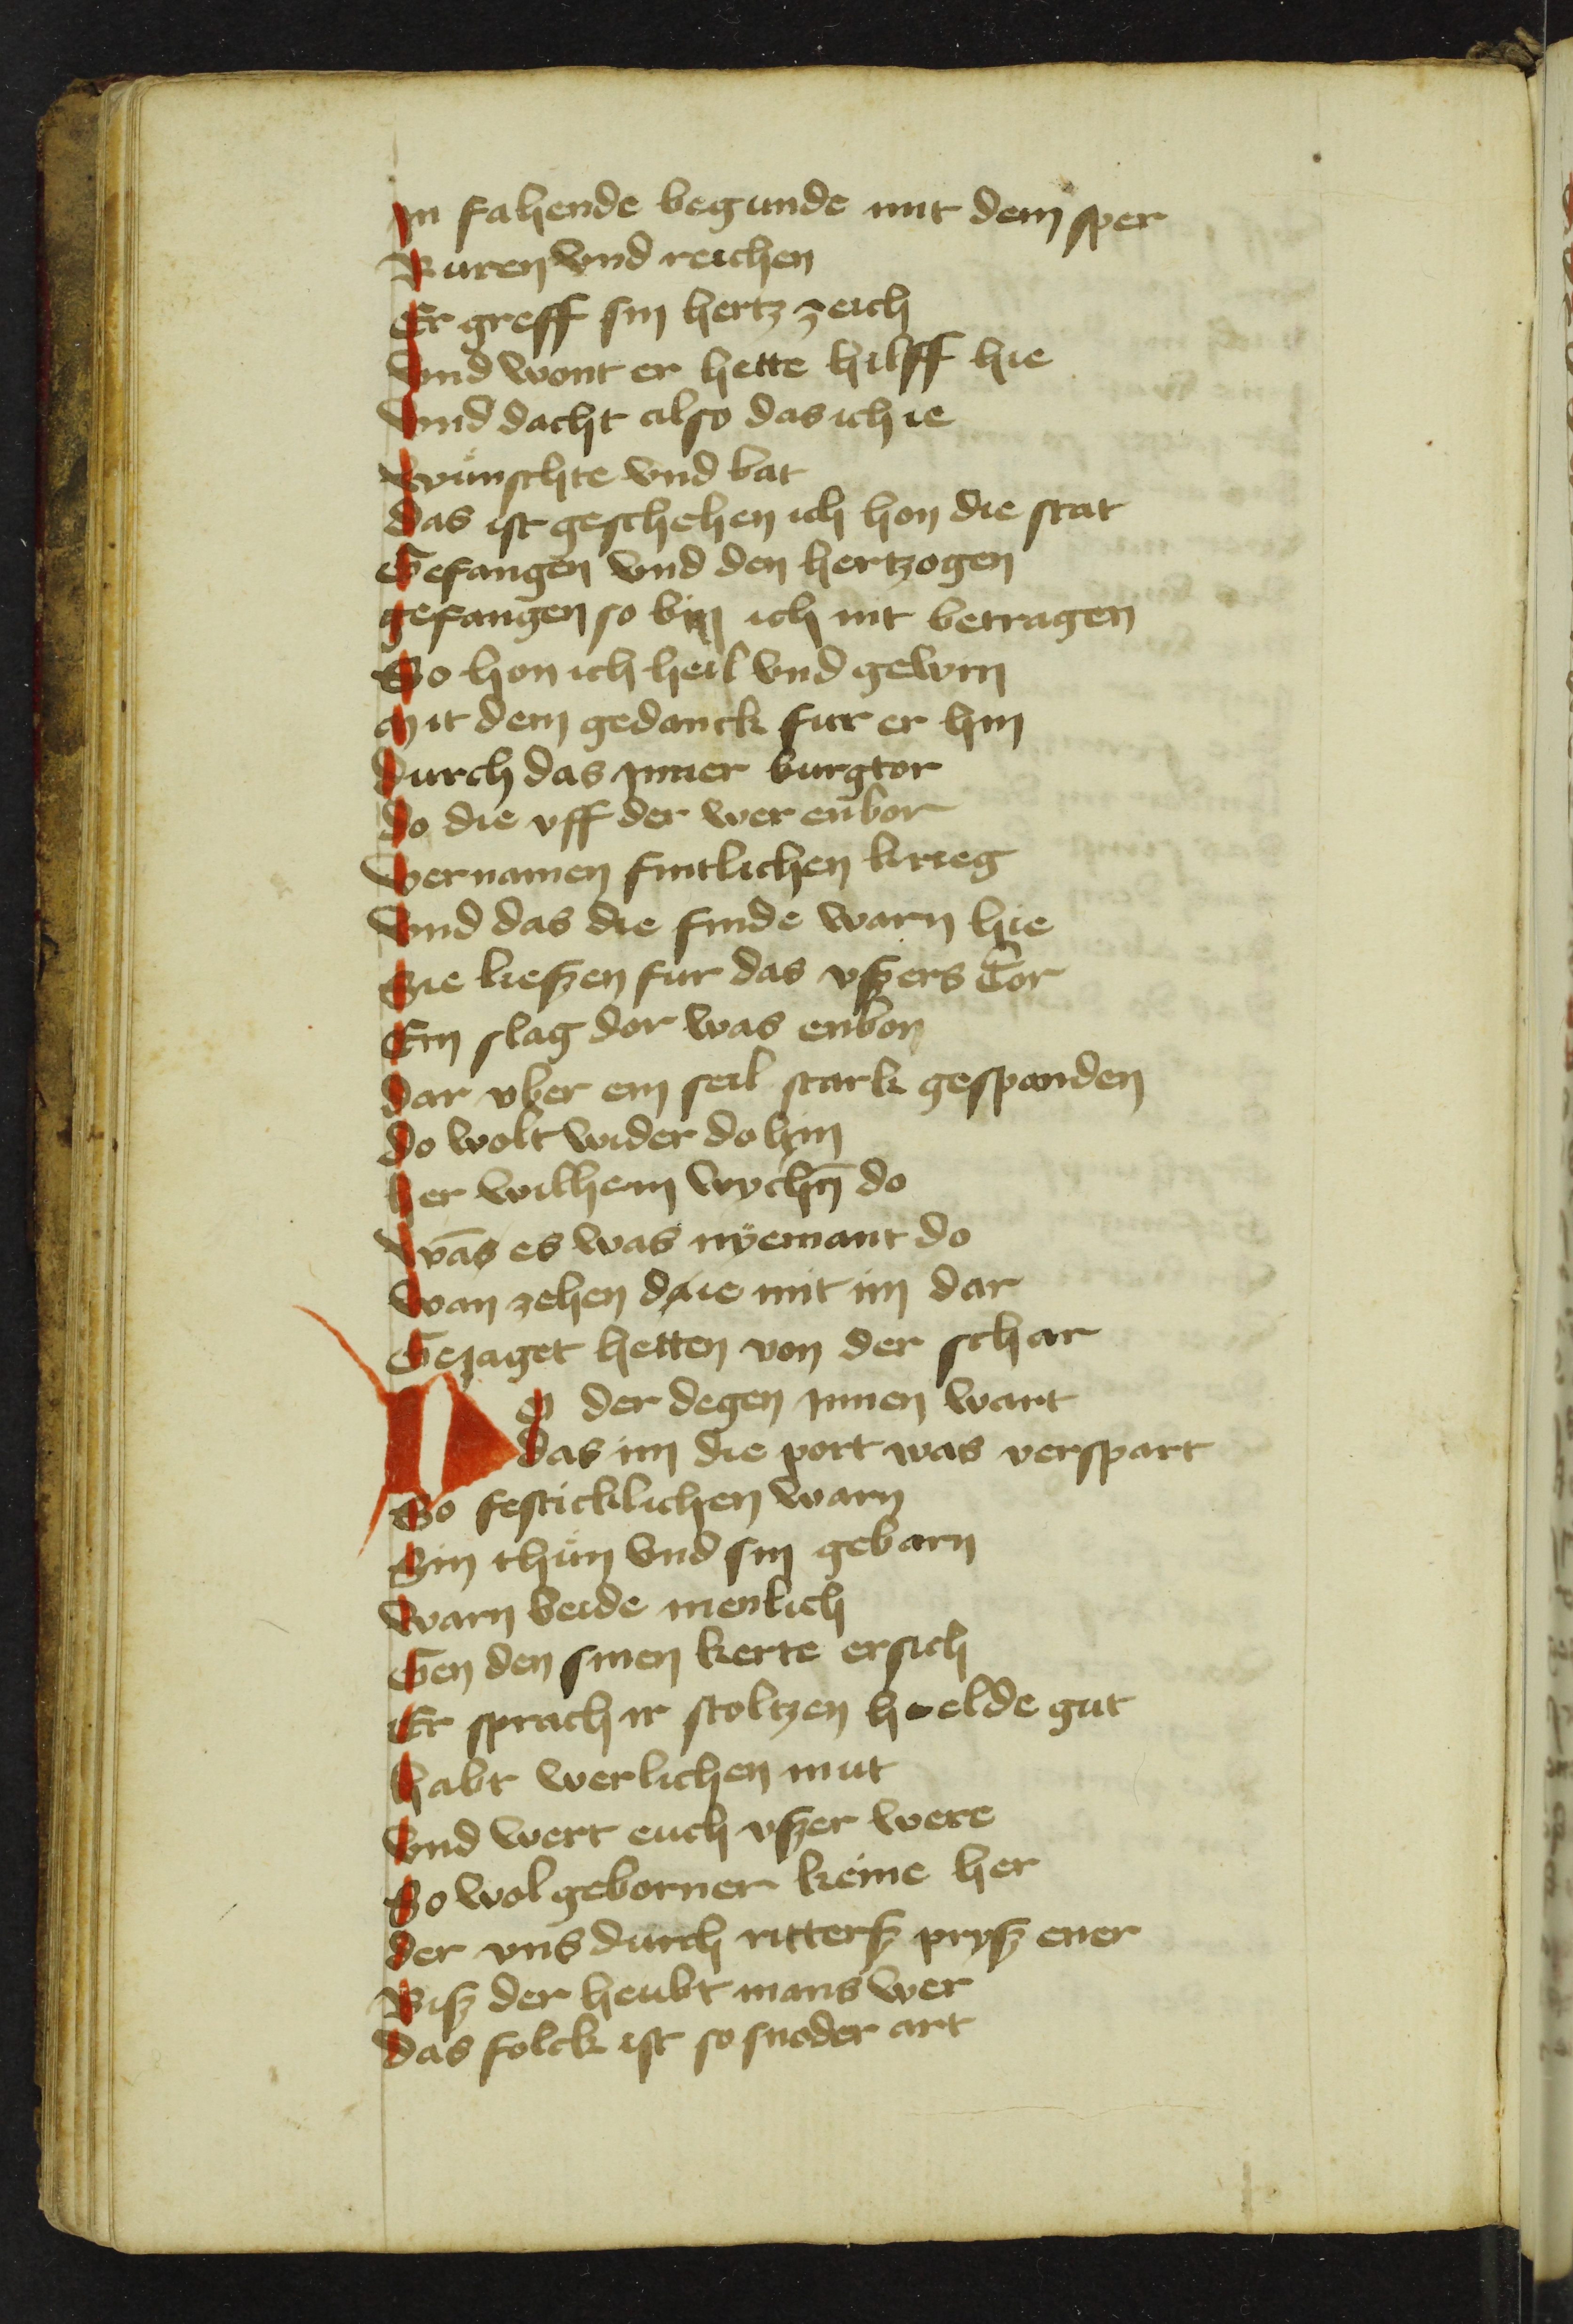 In fahende begunde mit dem sper
Ruren vnd reichen
Er greff sin hertz zeich
Vnd wont er hette hilff hie
Vnd dacht also das ich ie
Wunschte vnd bat
Das ist geschehen ich hon die stat
Gefangen vnd den hertzogen
gefangen so bin ich nit betragen
So hon ich heil vnd gewin
Mit dem gedanck fur er hin
Durch das inner burgtor
Do die vff der wer enbor
Vernamen fintlichen krieg
Vnd das die finde warn hie
Sie lieszen fur das vszers tor
Ein slag dor was enbon
Dar vber ein seil stark gespanden
Do wolt wider do hin
her wilhem wychn̄ do
Wās es was nÿemant do
Wan zehen die mit im dar
Gejaget hetten von der schar
Do der degen innen wart
Das im die port was verspart
So festicklichen warn
Sin thun vnd sin gebarn
Warn beide menlich
Gen den sinen kerte er sich
Er sprach ir stoltzen helde gut
Habt werlichen mut
Vnd wert euch vszer were
So wol geborner keine her
Der vns durch rittersz prysz ener
Bisz der heubt mans wer
Das folck ist so snoder art